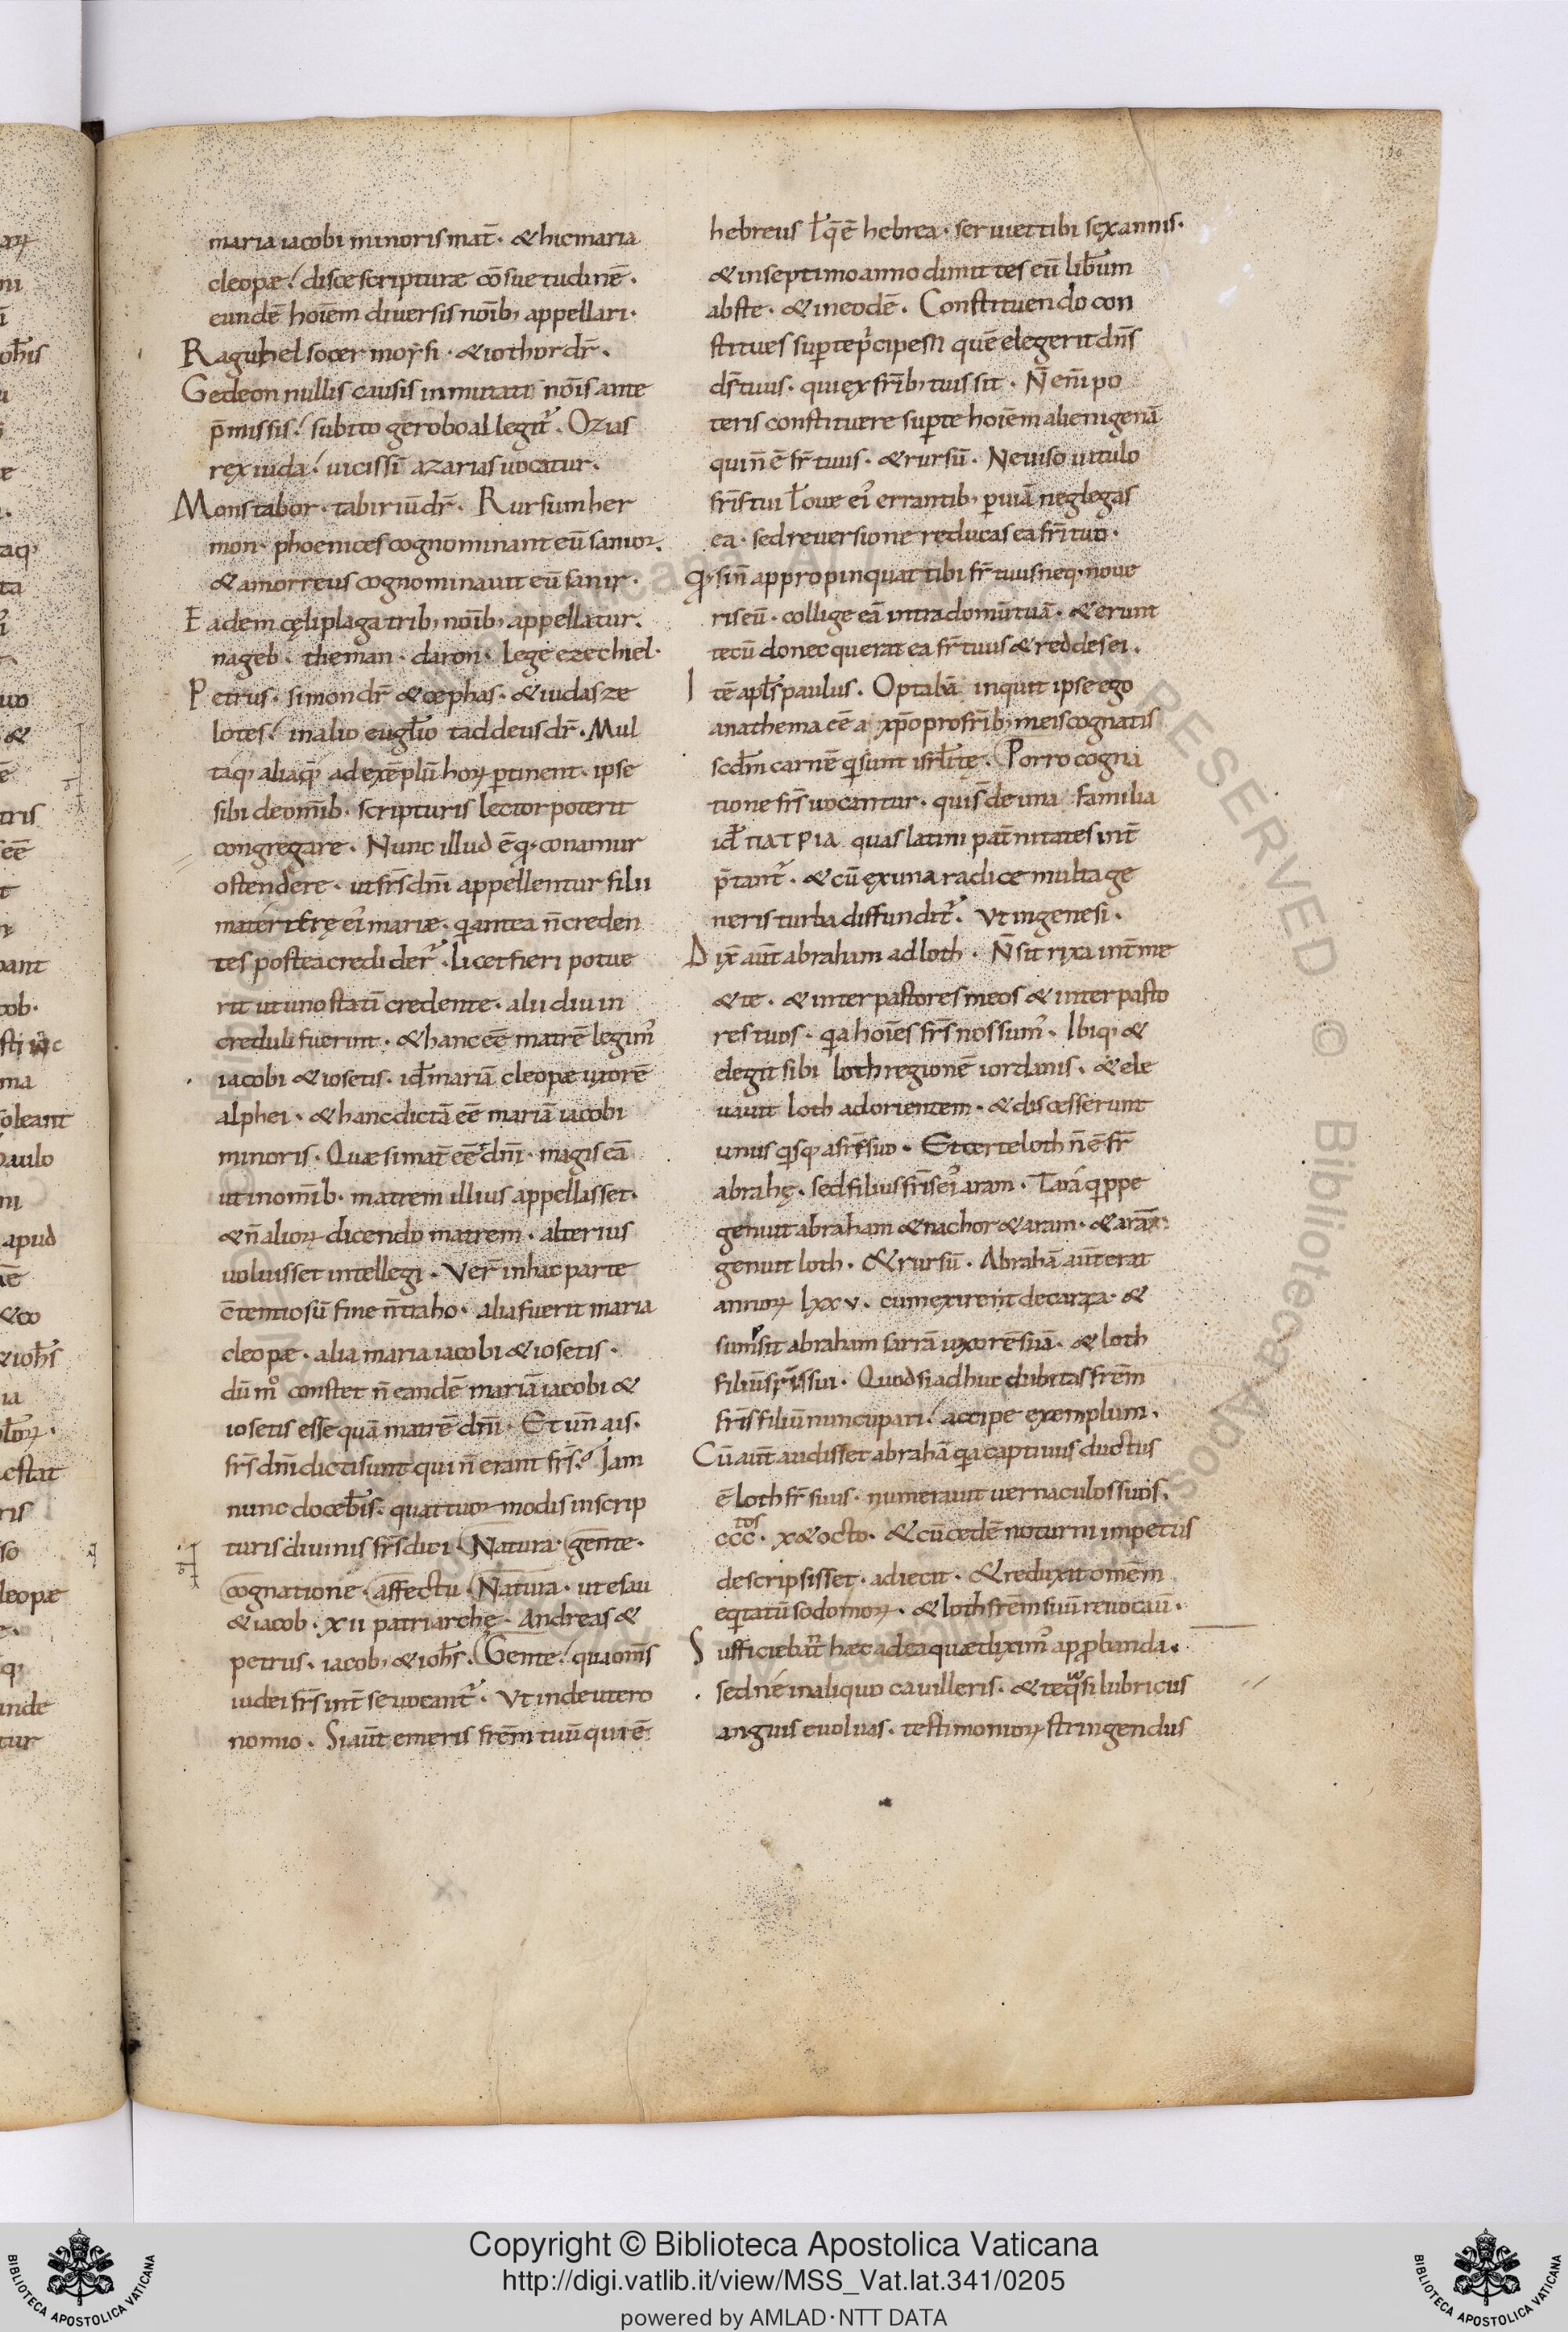 maria iacobi minoris mat̄· & hic maria
cleopæ? disce scripturæ cōsuetudinē·
eundē hoīem diversis noīb; appellari·
Raguhel socer moysi· & iothor dr̄·
Gedeon nullis causis inmutati noīs ante
p̄missis? subito geroboal legit᷑· Ozias
rex iuda? vicissī azarias vocatur·
Mons tabor· tabiriū dr̄· Rursum her
mon· phoenices cognominant eū sanior·
& amorreus cognominavit eū sanir·
Eadem cęli plaga trib; noīb; appellatur·
nageb· theman· daron· lege ezechiel·
Petrus· simon dr̄ & cephas· & iudas ze
lotes? in alio eugl̄io taddeus dr̄· Mul
taq; aliaq; ad exēplū hoꝝ ꝑtinent· ipse
sibi de om̄ib· scripturis lector poterit
congregare· Nunc illud ē q; conamur
ostendere· ut fr̄s dn̄i appellentur filii
materterę ei᷒ mariæ· qi antea n̄ creden
tes postea credider᷑· licet fieri potue
rit ut uno statī credente· alii diu in
creduli fuerint· & hanc eē matrē legim᷒
iacobi & iosetis· id̄ mariā cleopæ uxorē
alphei· & hanc dictā eē mariā iacobi
minoris· Quæ si mat̄ eēt dn̄i· magis eā
ut in om̄ib· matrem illius appellasset·
& n̄ alioꝝ dicendo matrem· alterius
voluisset intellegi· Ver̄ in hac parte
c̄tentiosū fine n̄ traho· alia fuerit maria
cleopæ· alia maria iacobi & iosetis·
dū m̊ constet n̄ eandē mariā iacobi &
iosetis esse quā matrē dn̄i· Et un̄ ais·
fr̄s dn̄i dicti sunt qui n̄ erant fr̄s? Jam
nunc doceb̄is· quattuor modis in scrip
turis divinis fr̄s dici· Natura· gente·
cognatione· affectu· Natura· ut esau
& iacob· xii patriarchę· Andreas &
petrus· iacob; & ioh̄s· Gente? qua om̄s
iudei fr̄s int̄ se vocant᷑· Ut in deutero
nomio· Si aūt emeris fr̄em tuū qui ē
hebreus ł q̄ ē hebrea· serviet tibi sex annis·
& in septimo anno dimittes eū lib̄um
abs te· & in eodē· Constituendo con
stitues suꝑ te pⁱncipem quē elegerit dn̄s
ds̄ tuus· qui ex fr̄ib; tuis sit· N̄ enī po
teris constituere suꝑ te hoīem alienigenā
qui n̄ ē fr̄ tuus· & rursū· Ne viso vitulo
fr̄is tui ł ove ei᷒ errantib; ꝑ viā neglegas
ea· sed reversione reducas ea fr̄i tuo·
q; si n̄ appropinquat tibi fr̄ tuus neq; nove
ris eū· collige eā intra domū tuā· & erunt
tecū donec querat ea fr̄ tuus & reddes ei·
Itē apl̄s paulus· Optabā inquit ipse ego
anathema eē a xp̄o pro fr̄ib; meis cognatis
scd̄m carnē qi sunt isrl̄itę· Porro cogna
tione fr̄s vocantur· qui s̄ de una familia
id̄ ΠΑΤΡΙΑ quas latini pat̄nitates int̄
p̄tant᷑· & cū ex una radice multa ge
neris turba diffundit᷑· Ut in genesi·
Dix̄ aūt abraham ad loth· N̄ sit rixa int̄ me
& te· & inter pastores meos & inter pasto
res tuos· qia hoīes fr̄s nos sum᷒· Ibiq; &
elegit sibi loth regionē iordanis· & ele
vavit loth ad orientem· & discesserunt
unus qisq; a fr̄e suo· Et certe loth n̄ ē fr̄
abrahę· sed filius fr̄is ei᷒ aram· Tarā qippe
genuit abraham & nachor & aram· & arām
genuit loth· & rursū· Abrahā aūt erat
annoꝝ lxxv· cum exirent de carra· &
sumpsit abraham sarrā uxorē suā· & loth
filiū fr̄is sui· Quod si adhuc dubitas fr̄em
fr̄is filiū nuncupari? accipe exemplum·
Cū aūt audisset abrahā qia captivus ductus
ē loth fr̄ suus· numeravit vernaculos suos·
ccc tos· x & octo· & cū cedē noturni impetus
descripsisset· adiecit· & reduxit om̄em
eqitatū sodomoꝝ· & loth fr̄em suū revocav̄·
Sufficiebat̄ hæc ad ea quæ dixim᷒ approbanda·
sed ne in aliquo cavilleris· & te qᵃsi lubricus
anguis evolvas· testimonioꝝ stringendus
Copyright © Biblioteca Apostolica Vaticana
http://digi.vatlib.it/view/MSS_Vat.lat.341/0205
powered by AMLAD·NTT DATA
BIBLIOTECA APOSTOLICA VATICANA
BIBLIOTECA APOSTOLICA VATICANA